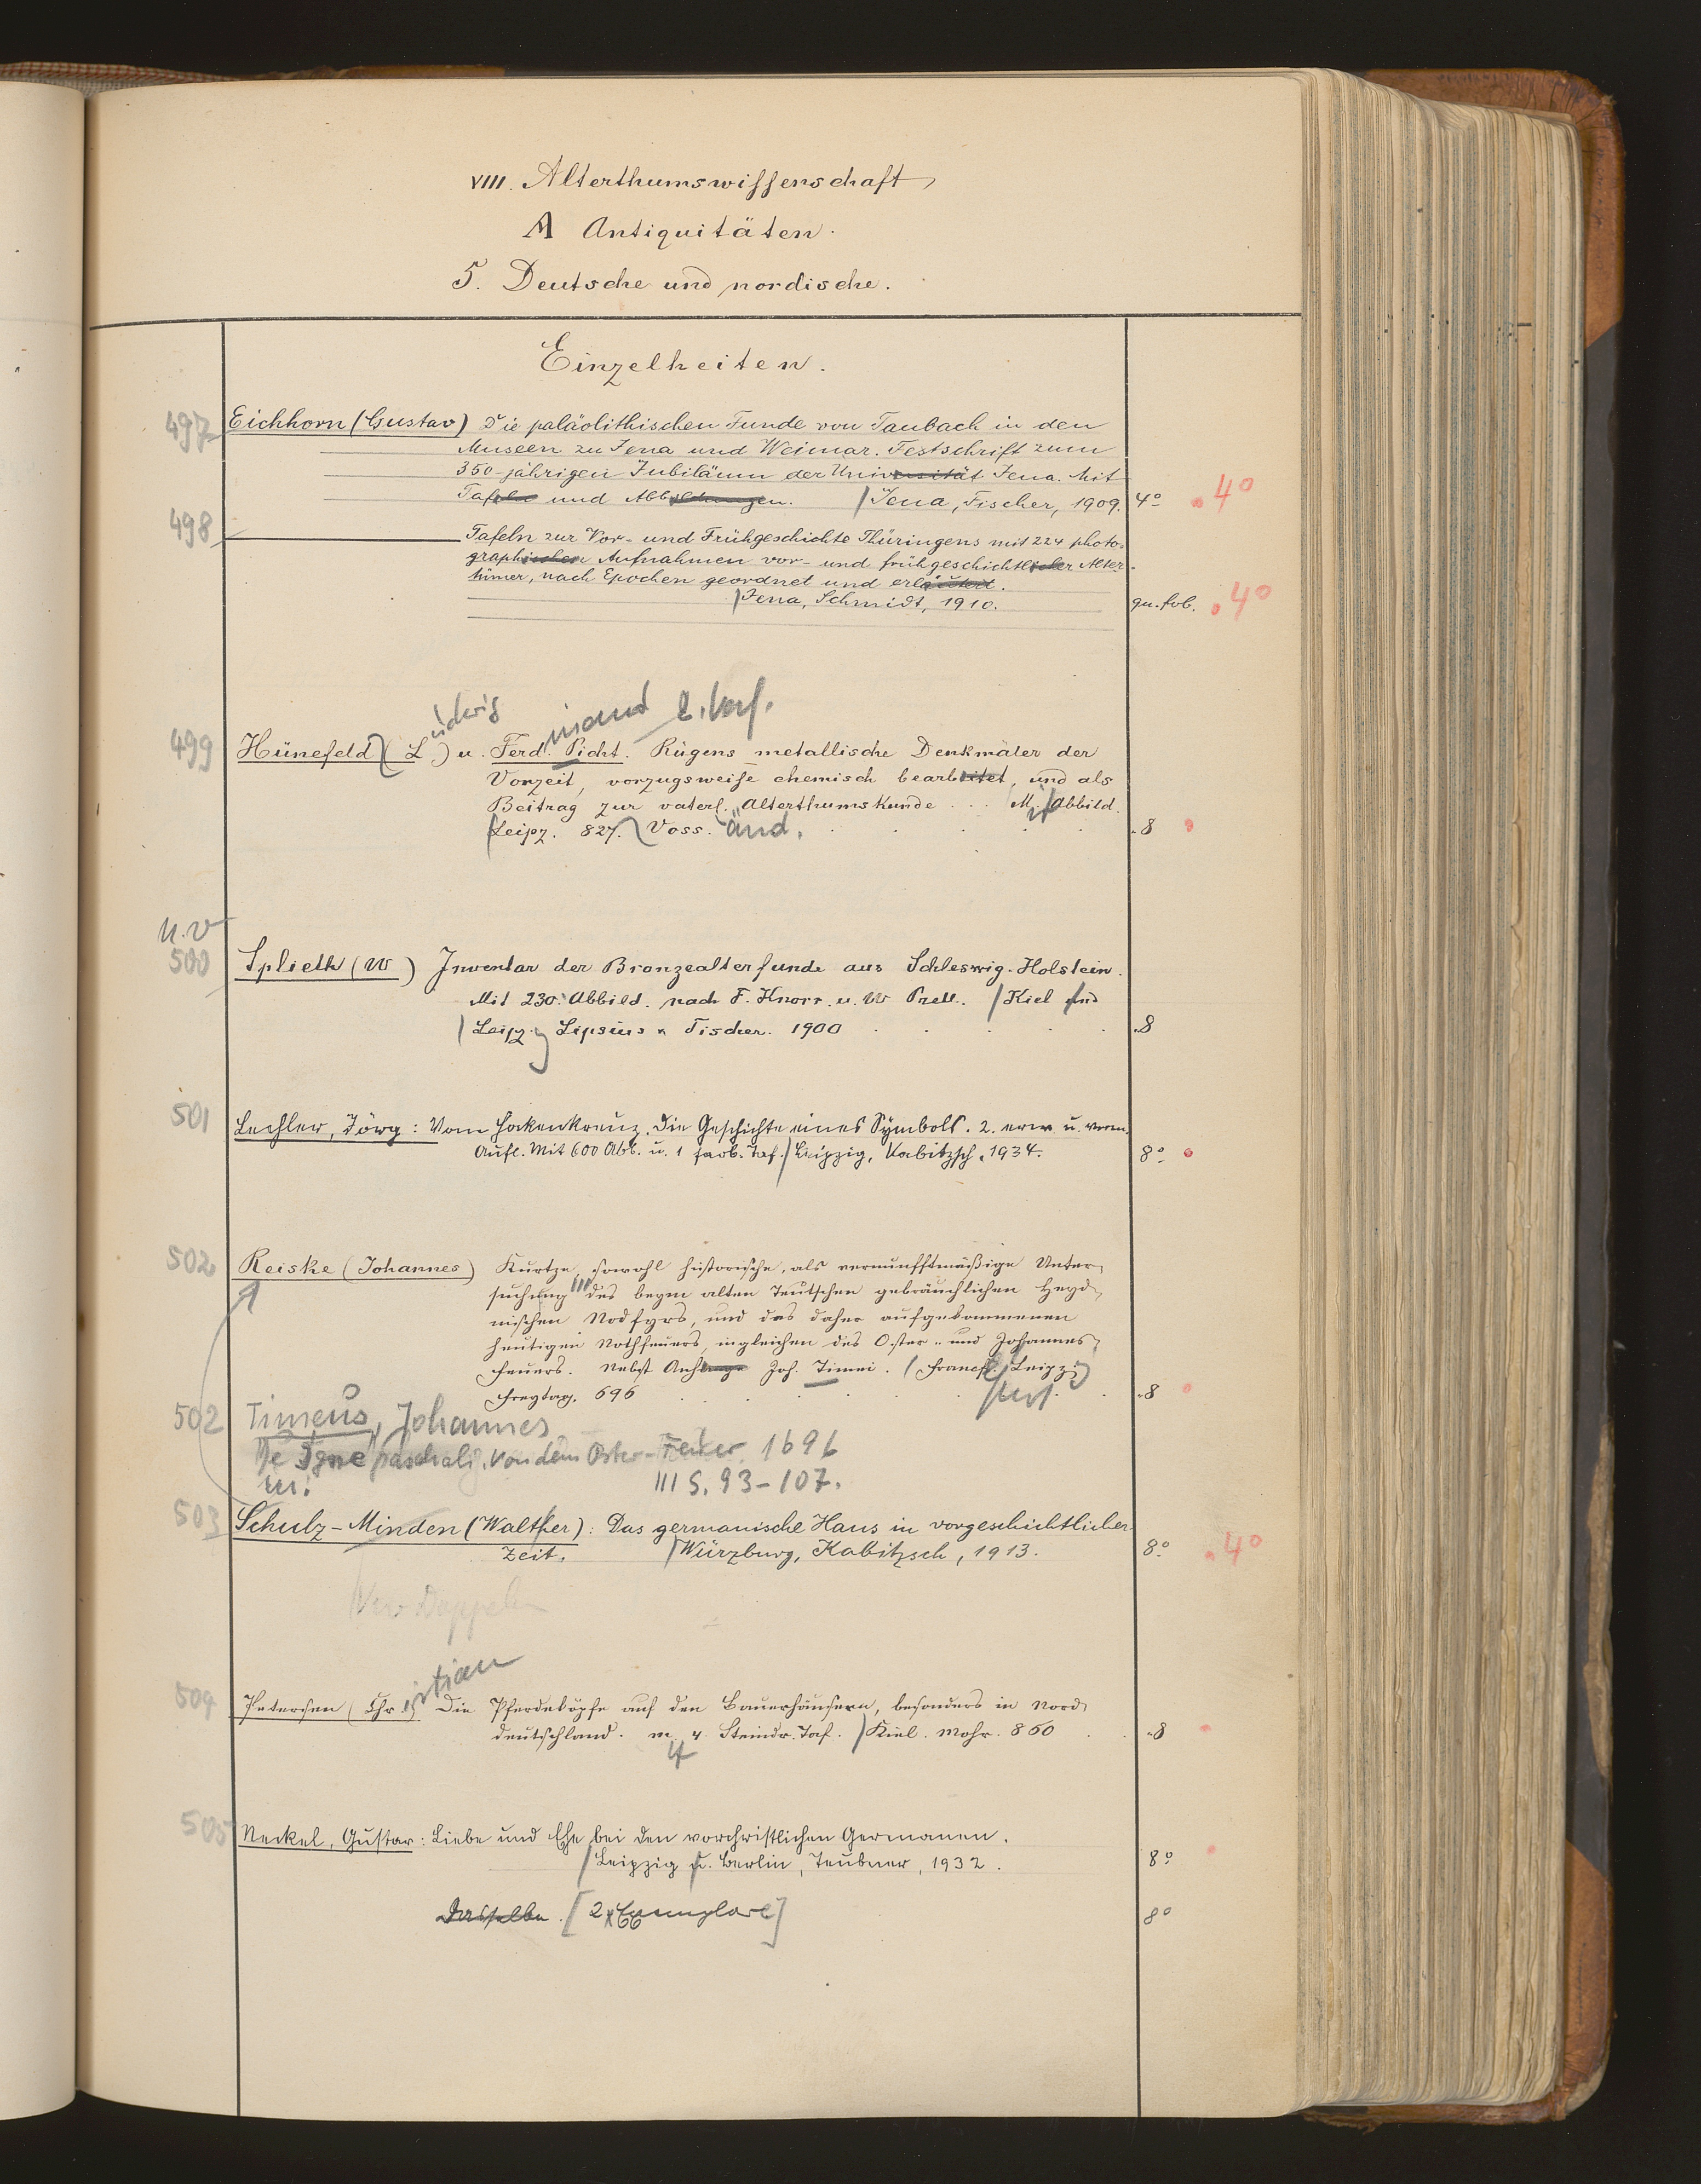 VIII. Alterthumswissenschaft
A Antiquitäten.
5. Deutsche und nordische.
Einzelheiten.
497 Eichhorn (Gustav) Die paläolithischen Funde von Taubach in den
Museen zu Jena und Weimar. Festschrift zum
350-jährigen Jubiläum der Universität Jena. Mit
Tafeln und Abbildungen. / Jena, Fischer, 1909. 4° 4°
498 Tafeln zur Vor- und Frühgeschichte Thüringens mit 224 photo-
graphischen Aufnahmen vor- und frühgeschichtlicher Alter-
tümer, nach Epochen geordnet und erläutert.
/ Jena, Schmidt, 1910. qu. fol. 4°
udwig inand 2. Verf.
499 Hünefeld (L) u. Ferd. Picht. Rügens metallische Denkmäler der
Vorzeit, vorzugsweise chemisch bearbeitet, und als
Beitrag zur vaterl. Alterthumskunde . . . M. Abbild.
Leipz. 827. Voss. änd. 8
u.v
500 Splieth (W) Inventar der Bronzealterfunde aus Schleswig-Holstein.
Mit 230 Abbild. nach F. Knorr u. W Prell. / Kiel und
/ Leipz. Lipsius u Tischer. 1900 8
501 Lechler, Jörg: Vom Hakenkreuz. Die Geschichte eines Symbols. 2. erw. u. verm.
Aufl. Mit 600 Abb. u. 1 farb. Taf. / Leipzig, Kabitzsch, 1934. 8°
502 Reiske (Johannes) Kurtze, sowohl historische, als vernunfftmäßige Unter-
suchung des beym alten Teutschen gebräuchlichen Heyd-
nischen Nodfyrs, und das daher aufgekommenen
heutigen Nothfeuers, ingleichen des Oster- und Johannes-
feuers. Nebst Anhange Joh. Timei. / Francf. Leipz
Freytag. 696 8
502 Timeus, Johannes
De Igne paschali. Von dem Oster-Feuer. 1696
III S. 93-107.
503 Schulz-Minden (Walther): Das germanische Haus in vorgeschichtlicher
Zeit. / Würzburg, Kabitzsch, 1913. 8° 4°
istian
504 Petersen (Chr) Die Pferdeköpfe auf den Bauerhäusern, besonders in Nord-
deutschland. m. 4 Steindr. Taf. / Kiel. Mohr. 860 8
4
505 Neckel, Gustav: Liebe und Ehe bei den vorchristlichen Germanen.
/ Leipzig u. Berlin, Teubner, 1932. 8°
Dasselbe. [2 Exemplare] 8°